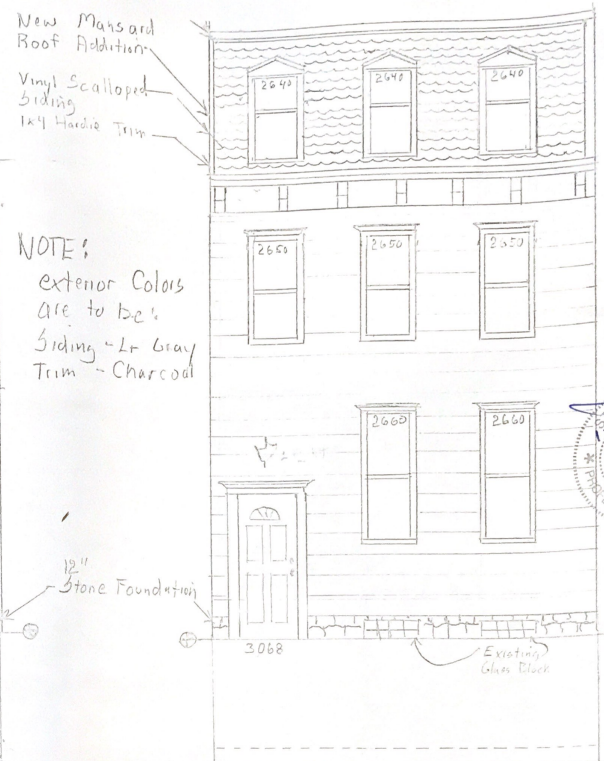 New Mansard
Roof Addition
Vinyl Scalloped
Siding
1x4 Hardie Trim
2640
2640
2640
NOTE:
exterior Colors
are to be:
Siding - Lt Gray
Trim - Charcoal
2650
2650
2650
2660
2660
12"
Stone Foundation
3068
Existing
Glass Block